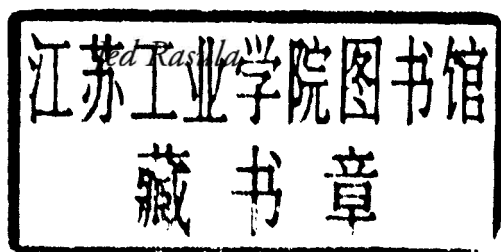 江苏工业学院图书馆
Jed Rasula
藏书章